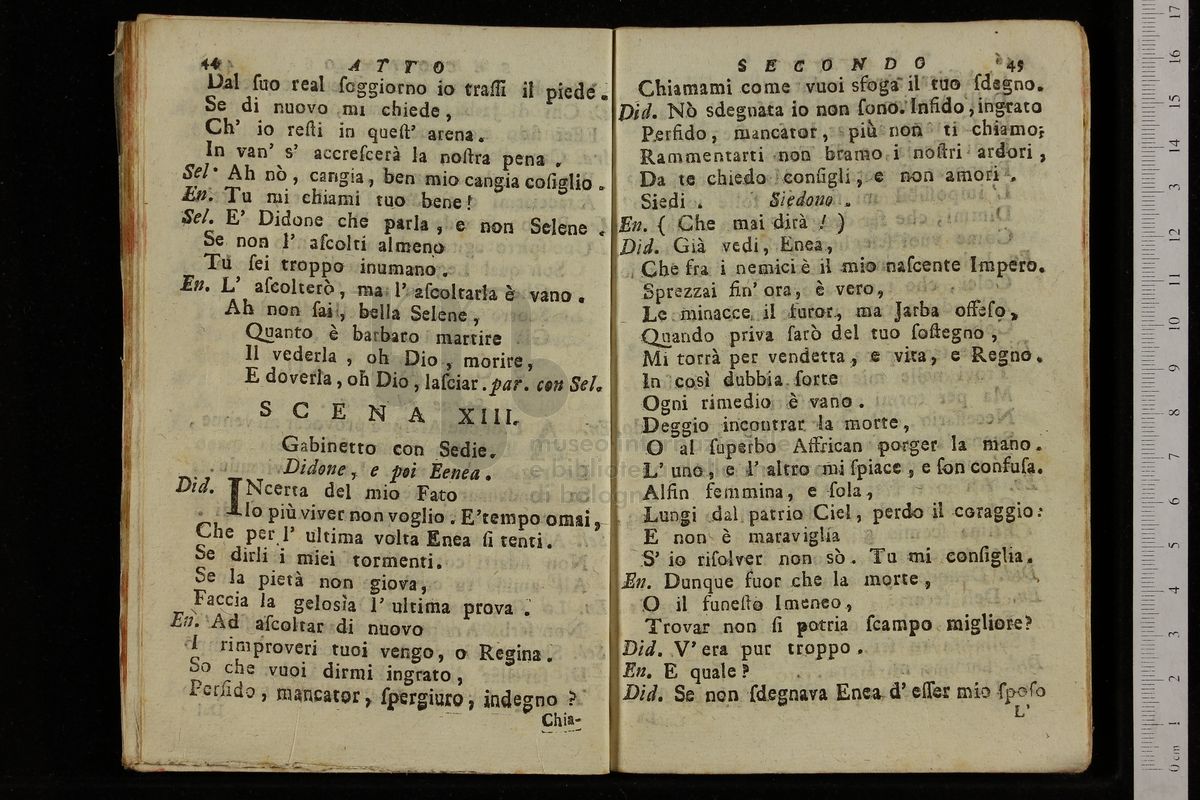 44 ATTO
Dal ſuo real ſoggiorno io traſſi il piede.
Se di nuovo mi chiede,
Ch' io reſti in queſt' arena.
In van' s' accreſcerà la noſtra pena.
Sel. Ah nò, cangia, ben mio cangia coſiglio.
En. Tu mi chiami tuo bene!
Sel. E' Didone che parla, e non Selene.
Se non l' aſcolti almeno
Tu ſei troppo inumano.
En. L' aſcolterò, ma l' aſcoltarla è vano.
Ah non ſai, bella Selene,
Quanto è barbaro martire
Il vederla, oh Dio, morire,
E doverla, oh Dio, laſciar. par. con Sel.
SCENA XIII.
Gabinetto con Sedie.
Didone, e poi Eenea.
Did. INcerta del mio Fato
Io più viver non voglio. E'tempo omai,
Che per l' ultima volta Enea ſi tenti.
Se dirli i miei tormenti.
Se la pietà non giova,
Faccia la gelosìa l' ultima prova.
En. Ad aſcoltar di nuovo
I rimproveri tuoi vengo, o Regina.
So che vuoi dirmi ingrato,
Perfido, mancator, ſpergiuro, indegno?
Chia-
SECONDO 45
Chiamami come vuoi sfoga il tuo ſdegno.
Did. Nò sdegnata io non ſono. Infido, ingrato
Perfido, mancator, più non ti chiamo;
Rammentarti non bramo i noſtri ardori,
Da te chiedo conſigli, e non amori.
Siedi. Siedono.
En. ( Che mai dirà! )
Did. Già vedi, Enea,
Che fra i nemici è il mio naſcente Impero.
Sprezzai fin' ora, è vero,
Le minacce, il furor, ma Jarba offeſo,
Quando priva ſarò del tuo ſoſtegno,
Mi torrà per vendetta, e vita, e Regno.
In così dubbia ſorte
Ogni rimedio è vano.
Deggio incontrar la morte,
O al ſuperbo Affrican porger la mano.
L' uno, e l' altro mi ſpiace, e ſon confuſa.
Alfin femmina, e ſola,
Lungi dal patrio Ciel, perdo il coraggio:
E non è maraviglia
S' io riſolver non sò. Tu mi conſiglia.
En. Dunque fuor che la morte,
O il funeſto Imeneo,
Trovar non ſi potria ſcampo migliore?
Did. V' era pur troppo.
En. E quale?
Did. Se non ſdegnava Enea d' eſſer mio ſpoſo
L'
museo internazionale
e biblioteca della musica
di bologna
0 cm 1 2 3 4 5 6 7 8 9 10 11 12 13 14 15 16 17